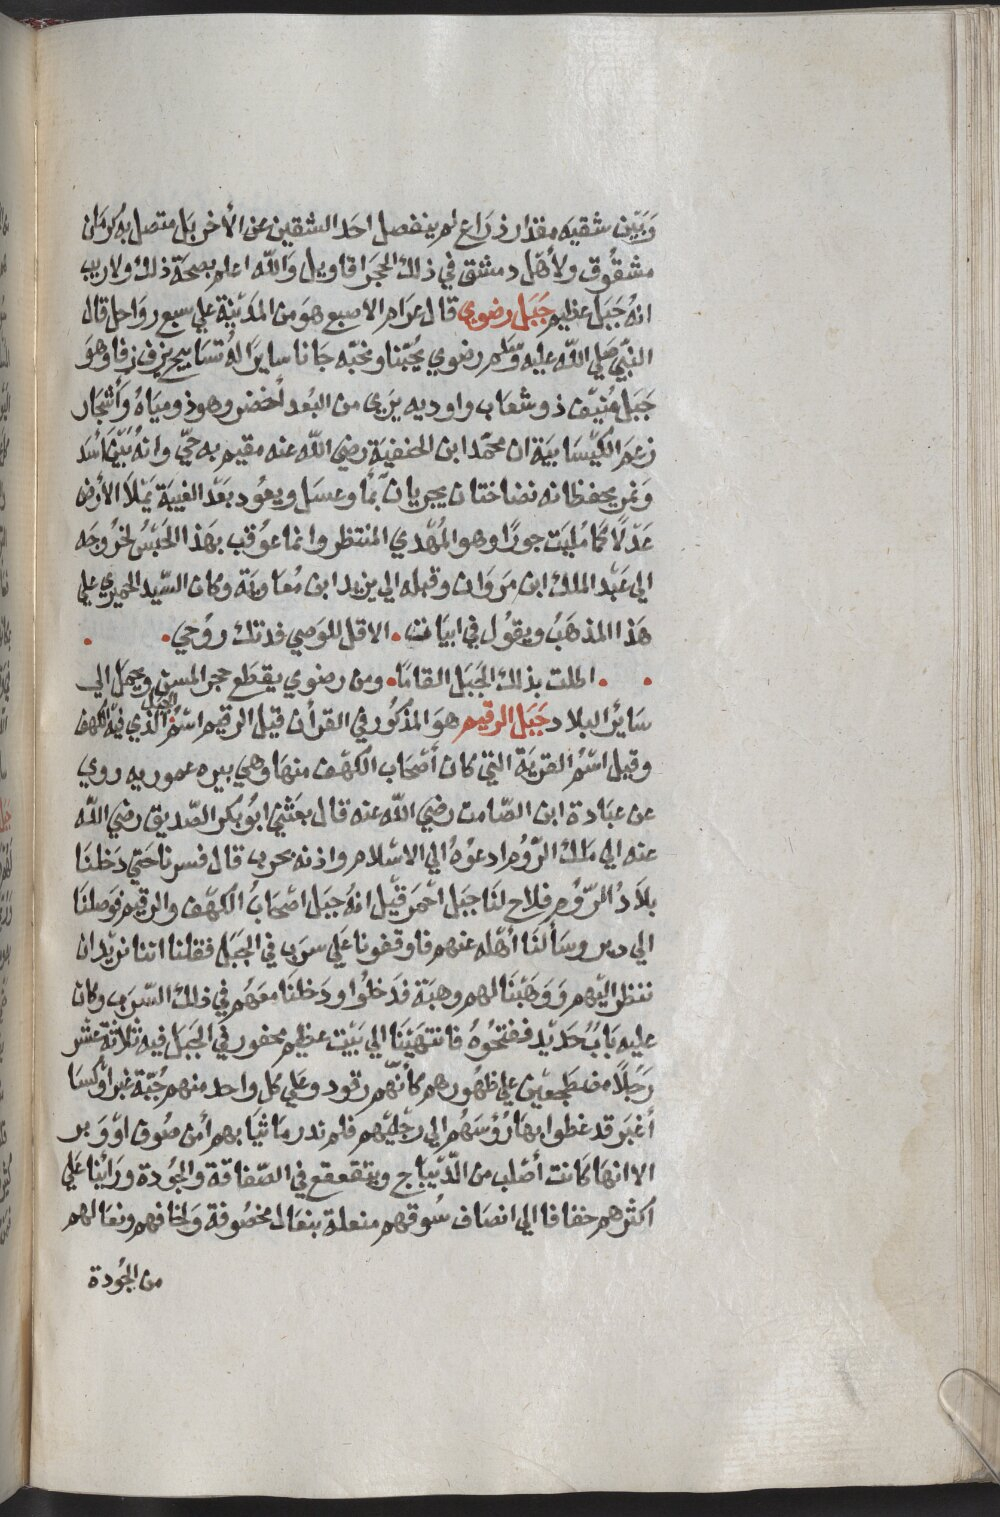 وَبَيْن شقيه مقدار ذرَاع لم ينفصل احد الشقين عن الأخر بَل متصل به كرمَان
مشقُوق ولأهْل دمشق في ذلك الحجَر اقاويل وَالله اعلم بصحَة ذلك ولا ريب
انهُ جَبَل عظيم جَبَل رضوي قال عرَام الاصبع هوَ من المَديْنِة علي سبع روَاحل قال
النبّي صَلي اللّه عليه وسَلم رضوي يحُبّنا ونحبّه جَانا سايرًا لهُ تسَابيح يزف زفا وهوَ
جَبَل مُنيْف ذو شعَاب واوديه يرَى من البُعد أخضر وهوذ وميَاهُ وَأشجَار
زعمَ الكيْسَا بيَة ان محمّد ابن الحنفيَة رضي اللّه عنه مقيم به حَيّ وانهُ بَيْن اسَد
وَنمر يحفظانه نضاختان يجريان بمَا وعسَل ويعوُد بعَد الغيبَة يمَلاَ الأرْض
عَدْلاً كمَا مُليَت جورًا وهو المُهْدي المنتظر وانما عوُقب بهَذا الحَبْسُ لخرُوجَه
الي عَبْد الملك ابن مَروَان وقبله الي يزيد ابن مُعَا ويَة وكان السّيد الحميْري علي
هَذا المذهَبُ ويقوُل في ابيَات الاقل للوَصي فدتك روُحي
اطلت بذلك الجَبَل القامَا ومن رضوي يقطَع حجر المسن ويحمَل الي
سَاير البلاد جَبَل الرقيم هوَ المذكُور في القرأن قيل الرقيم اسْمُ الجبَل الذي فيْه الكهف
وقيل اسْمُ القريَة التيّ كان أصْحَاب الكهْف منهَا وهي بيره عموريه روي
عن عبَادة ابن الصّامت رضيَ اللّه عنه قال بعَثنيَ ابوُ بكر الصّديق رضي اللّه
عنه الي مَلك الرّوُم ادعوُهُ الي الاسْلام واذنه بحرب قال فسرنا حَتي دَخلنَا
بلاَدُ الرّوُم فلاح لنَا جبَل احْمَر قيْل انهُ جبَل اصْحَابُ الكهْف والرقيم فوَصلنَا
الي دير وسَألنَا أهْله عنهم فاوقفونا عَلي سرَب في الجبَل فقلنا اننا نريْد ان
ننظر اليْهم وَوَهَبْنَا لهم وهبَة فدَخلوُا ودَخلنَا معَهُم في ذلك السّرَب وكان
عليه بَابُ حَديْد ففتحُوهُ فانتهَيْنَا الي بَيْت عظيم محفور في الجَبَل فيْه ثلاثة عشر
رَجُلاً مضطجَعْين علي ظهُورهم كأنّهم رقود وعَلي كل واحد منهم جُبّة غبرا وكسَا
أغبَر قد غطوا بهَا رُؤسَهُم الي رجْليْهم فلم ندر مَا ثيَا بهم أمن صُوف اوْ وَبر
الا انهَا كَانت أصْلب من الدّيْبَاج ويتقعقع في الصّفَاقة والجَوُدة ورَايْنَا عَلي
أكثرهم خفَافا الي انصَاف سُوقهم منعلة بنعَال مخصُوفة وَلخافهم ونعَالهم
من الجُوْدة